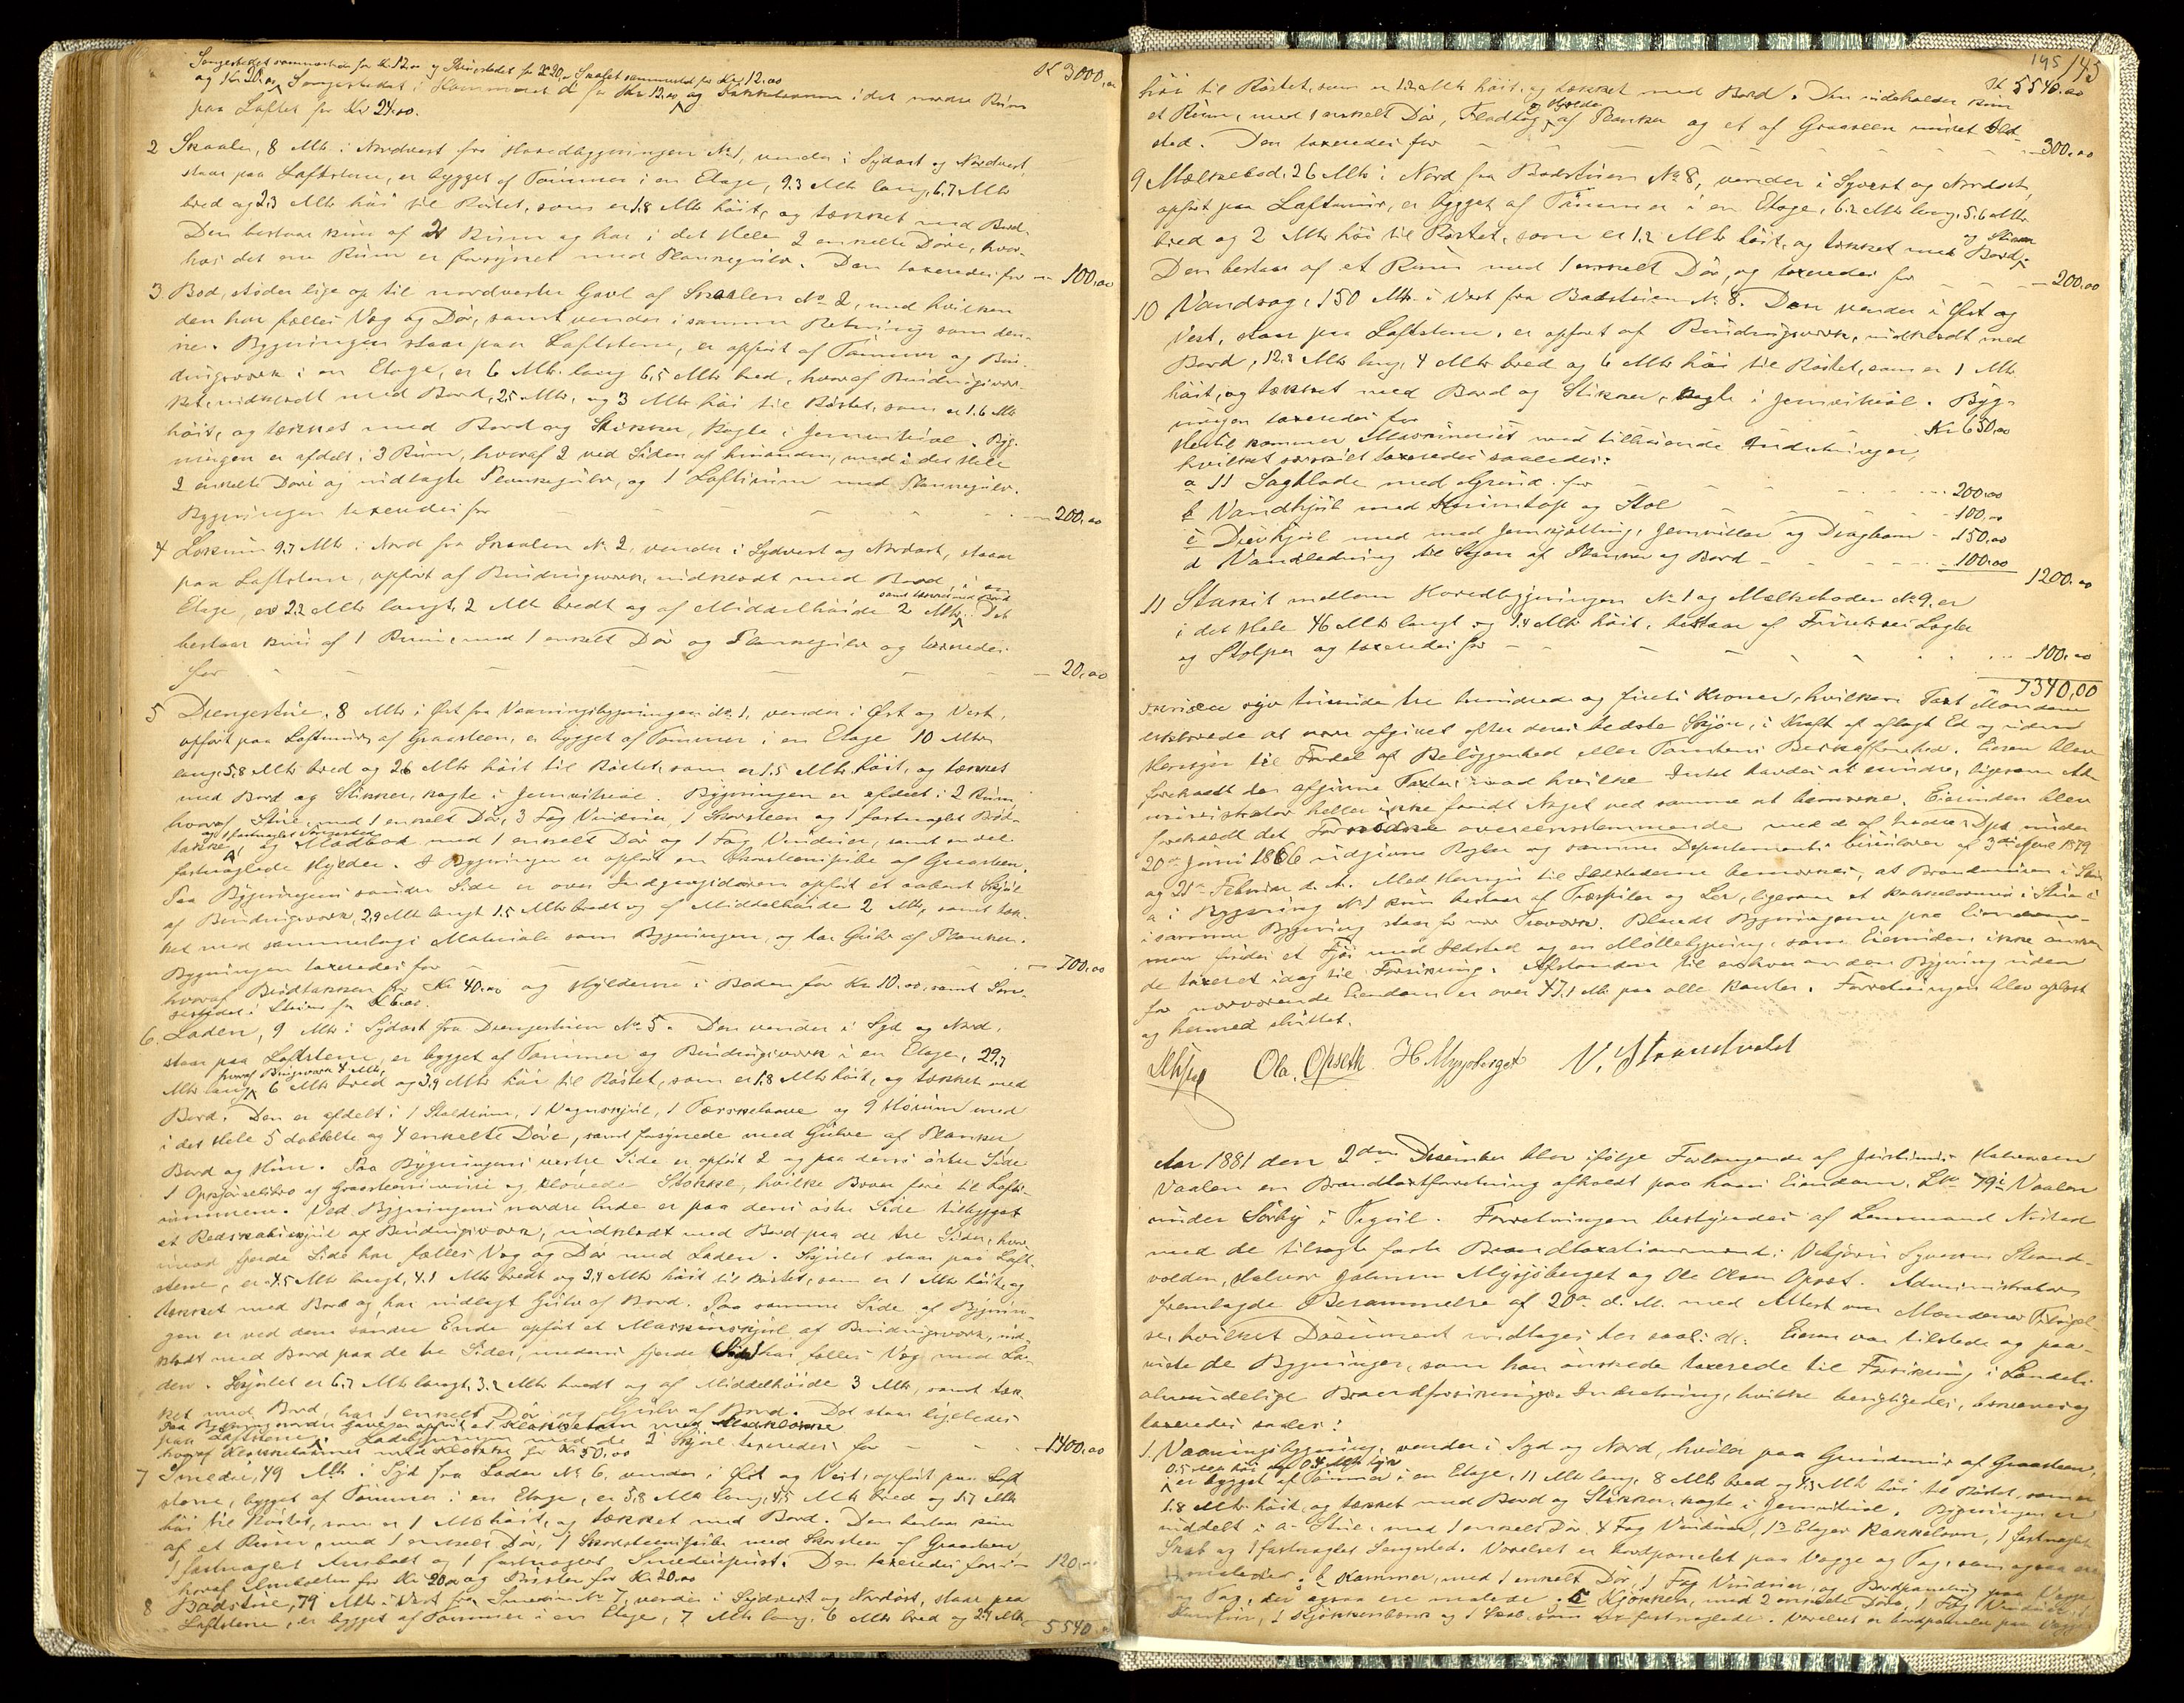 Sengestedet sammesteds for Kr 12.00 og Sengestedet for Kr 20.00 Skabet sammesteds for Kr 12.00
og Kr 20.00, Sengestedet i Kammeret d for Kr 12.00 og Kakkelovnen i det nordre Rum
Kr 3000,00
paa Loftet for Kr 24.00.
2 Skaalen, 8 Mtr i Nordvest fra Hovedbygningen No 1, vender i Sydost og Nordvest,
staar paa Loftstene, er bygget af Tømmer i en Etage, 9.3 Mtr lang, 6.7 Mtr
bred og 2.3 Mtr høi til Røstet, som er 1.8 Mtr høit, og tækket med Bord.
Den bestaar kun af 2 Rum og har i det Hele 2 enkelte Døre, hvor-
hos det ene Rum er forsynet med Plankegulv. Den taxeredes for — 100,00
3. Bod, støder lige op til nordvestre Gavl af Skaalen No 2, med hvilken
den har fælles Væg og Dør, samt vender i samme Retning som den-
ne. Bygningen staar paa Loftstene, er opført af Tømmer og Bin-
dingsværk i en Etage, er 6 Mtr lang 6,5 Mtr bred, hvoraf Bindingsvær-
ket, udklædt med Bord, 2,5 Mtr, og 3 Mtr høi til Røstet, som er 1.6 Mtr
høit, og tækket med Bord og Stikker, kogte i Jernvitriol. Byg-
ningen er afdelt i 3 Rum, hvoraf 2 ved Siden af hinanden, med i det Hele
2 enkelte Døre og nedlagte Plankegulve, og 1 Loftsrum med Plankegulv.
Bygningen taxeredes for — 200,00
4 Lokum 9.7 Mtr i Nord fra Skaalen No 2, vender i Sydvest og Nordost, staar
paa Loftstene, opført af Bindingsværk, udklædt med Bord, i en
samt tækket med Bord
Etage, er 2.2 Mtr langt, 2 Mtr bredt og af Middelhøide 2 Mtr. Det
bestaar kun af 1 Rum, med 1 enkelt Dør og Plankegulv og taxeredes
for — 20,00
5 Drengestue, 8 Mtr i Øst fra Vaaningsbygningen No 1, vender i Øst og Vest,
opført paa Loftmur af Graasteen, er bygget af Tømmer i en Etage 10 Mtr
lang, 5,8 Mtr bred og 2.6 Mtr høit til Røstet, som er 1.5 Mtr høit, og tækket
med Bord og Stikker, kogte i Jernvitriol. Bygningen er afdelt i 2 Rum,
hvoraf Stue, med 1 enkelt Dør, 3 Fag Vinduer, 1 Skorsteen og 1 fastnaglet Brød-
og 1 fastnaglet Sengested
takke, og Madbod med 1 enkelt Dør og 1 Fag Vinduer, samt en del
fastnaglede Hylder. I Bygningen er opført en Skorsteenspibe af Graasteen.
Paa Bygningens søndre Side er over Indgangsdøren opført et aabent Skjul
af Bindingsværk, 2.9 Mtr langt 1.5 Mtr bredt og af Middelhøide 2 Mtr, samt tæk-
ket med sammeslags Materiale som Bygningen, og har Gulv af Planker.
Bygningen taxeredes for — 700,00
hvoraf Brødtakken for Kr 40.00 og Hylderne i Boden for Kr 10.00, samt Sen-
gestedet i Stuen for Kr 6.00.
6. Laden, 9 Mtr i Sydost fra Drengestuen No 5. Den vender i Syd og Nord,
staar paa Loftstene, er bygget af Tømmer og Bindingsværk i en Etage, 29.7
hvoraf Bingsværk 4 Mtr,
Mtr lang, 6 Mtr bred og 3.9 Mtr høi til Røstet, som er 1.8 Mtr høit, og tækket med
Bord. Den er afdelt i 1 Staldrum, 1 Vognskjul, 1 Tærskelaave og 9 Hørum med
i det Hele 5 dobbelte og 4 enkelte Døre, samt forsynede med Gulve af Planker
Bord og Hun. Paa Bygningens vestre Side er opført 2 og paa dens østre Side
1 Opkjørselsbro af Graasteensmure og kløvede Stokke, hvilke Broer føre til Lofts-
rummene. Ved Bygningens nordre Ende er paa dens østre Side tilbygget
et Redskabsskjul af Bindingsværk, udklædt med Bord paa de tre Sider, hvor-
imod fjerde Side har fælles Væg og Dør med Laden. Skjulet staar paa Loft-
stene, er 4.5 Mtr langt, 4.1 Mtr bredt og 2,4 Mtr høit til Røstet, som er 1 Mtr høit, og
tækket med Bord og har nedlagt Gulv af Bord. Paa samme Side af Bygnin-
gen er ved dens søndre Ende opført et Maskinskjul af Bindingsværk, ud-
klædt med Bord paa de tre Sider, medens fjerde Side har fælles Væg med La-
den. Skjulet er 6.7 Mtr langt, 3.2 Mtr bredt og af Middelhøide 3 Mtr, samt tæk-
ket med Bord, har 1 enkelt Dør og Gulv af Bord. Det staar ligeledes
Paa Bygningens nordre Gavl er opført et Klokketaarn med Madklokke
paa Loftstene. Ladebygningen med de 2 Skjul taxeredes for — 1400,00
hvoraf Klokketaarnet med Klokke for Kr 50.00
7 Smedie, 49 Mtr i Syd fra Laden No 6, vender i Øst og Vest, opført paa Loft-
stene, bygget af Tømmer i en Etage, er 5,8 Mtr lang, 4,5 Mtr bred og 1.7 Mtr
høi til Røstet, som er 1 Mtr høit, og tækket med Bord. Den bestaar kun
af et Rum, med 1 enkelt Dør, 1 Skorsteenspibe med Skorsteen af Graasteen
1 fastnaglet Ambolt og 1 fastnaglet Smediepust. Den taxeredes for — 120,00
hvoraf Ambolten for Kr 20.00 og Pusten for Kr 20.00
8 Badstue, 79 Mtr i Vest fra Smedien No 7, vender i Sydvest og Nordost, staar paa
Loftstene, er bygget af Tømmer i en Etage, 7 Mtr lang, 6 Mtr bred og 2.4 Mtr
5540
195 145
Kr 5540.00
høi til Røstet, som er 1.2 Mtr høit, og tækket med Bord. Den indeholder kun
og Hylder
et Rum, med 1 enkelt Dør, Fladtag af Planker og et af Graasteen muret Ild-
sted. Den taxeredes for — 300.00
9 Mælkebod, 26 Mtr i Nord fra Badstuen No 8, vender i Syvest og Nordost,
opført paa Loftmur, er bygget af Tømmer i en Etage, 6.2 Mtr lang, 5.6 Mtr
bred og 2 Mtr høi til Røstet, som er 1.2 Mtr høit, og tækket med Bord
og Stikker
Den bestaar af et Rum med 1 enkelt Dør, og taxeredes for — 200.00
10 Vandsag, 150 Mtr i Vest fra Badstuen No 8. Den vender i Øst og
Vest, staar paa Loftstene, er opført af Bindingsværk, udklædt med
Bord, 12.8 Mtr lang, 4 Mtr bred og 6 Mtr høi til Røstet, som er 1 Mtr
høit, og tækket med Bord og Stikker, kogte i Jernvitriol. Byg-
ningen taxeredes for Kr 650,00
Hertil kommer Maskineriet med tilhørende Indretninger,
hvilket særskilt taxeredes saaledes:
a 11 Sagblade med Grind for — 200.00
b Vandhjul med Kumtop og Stol — 100,00
c Drevhjul med med Jernskjolling, Jernvaltse og Dragbom — 150,00
d Vandledning til Sagen af Planker og Bord — 100.00 1200.00
11 Stakit mellem Hovedbygningen No 1 og Mælkeboden No 9, er
i det Hele 46 Mtr langt og 1.4 Mtr høit, bestaar af Furutræes Lægter
og Stolper og taxeredes for — 100.00
7340,00
skriver syv tusinde tre hundrede og firti Kroner, hvilken Taxt Mændene
erklærede at være afgivet efter deres bedste Skjøn, i Kraft af aflagt Ed og uden
Hensyn til Fordel af Beliggenhed eller Tomtens Beskaffenhed. Eieren blev
forelæst den afgivne Taxt, imod hvilke Intet havdes at erindre, ligesom Ad-
ministrator heller ikke fandt Noget ved samme at bemærke. Eienden blev
forelæst det Fornødne overeensstemmende med de af Indre Dpt under
20de Juni 1866 udgivne Regler og samme Departements Cirkulærer af 3die April 1879
og 21de Februar d. A. Med Hensyn til Ildstederne bemærkes, at Brandmuren i Stue
a i Bygning No 1 kun bestaar af Træspiler og Leer, ligesom et Kakkelovnsrør i Stue c
i samme Bygning staar for nær Træværk. Blandt Bygningerne paa Eiendom-
men findes et Fjøs med Ildsted og en Møllebygning, som Eieninden ikke ønsker-
de taxeret idag til Forsikring. Afstanden til enhver anden Bygning uden
for nærværende Eiendom er over 47,1 Mtr paa alle Kanter. Forretningen blev oplæst
og hermed sluttet.
Ola. Opseth H Myssberget V. Strandvold
Aar 1881 den 2den December blev ifølge Forlangende af Halvorsen
Vaalen en Brandtaxtforretning afholdt paa hans Eiendom, L No 79 i Vaalen
under Sørby i Thinglag. Forretningen bestyredes af Lensmand Nysted
med de tilsagte faste Brandtaxationsmænd: Vebjørn Syversen Strand-
volden, Halvor Johnsen Myssjøberget og Ole Olsen Opset. Administrator
fremlagde Berammelse af 20de d. M. med Attest om Mændenes Tilsigel-
se, hvilket Document indtages her saal: dr. Eieren var tilstede og paa-
viste de Bygninger, som han ønskede taxerede til Forsikring i Landets
almindelige Brandforsikrings-Indretning, hvilke besigtigedes, beskrives og
taxeredes saaled:
1 Vaaningsbygning, vender i Syd og Nord, hviler paa Grundmur af Graasteen,
0.5 Mtr høi og 0.4 Mtr tyk
er bygget af Tømmer i en Etage, 11 Mtr lang, 8 Mtr bred og 4.3 Mtr høi til Røstet, som er
1.8 Mtr høit, og tækket med Bord og Stikker, kogte i Jernvitriol. Bygningen er
inddelt i a. Stue, med 1 enkelt Dør, 4 Fag Vinduer, 1 3 Etages Kakkelovn, 1 fastnaglet
Skab og 1 fastnaglet Sengested. Værelset er bordpanelet paa Vægge og Tag, som ogsaa ere
malede. b Kammer, med 1 enkelt Dør, 1 Fag Vinduer, og Bordpaneling paa Vægge
og Tag, der ogsaa ere malede. c Kjøkken, med 2 enkelte Døre, 1 Fag Vinduer, 1
1 Kjøkkenbænk og 1 Skab, som er fastnaglede. Værelset er bordpanelet paa Vægge